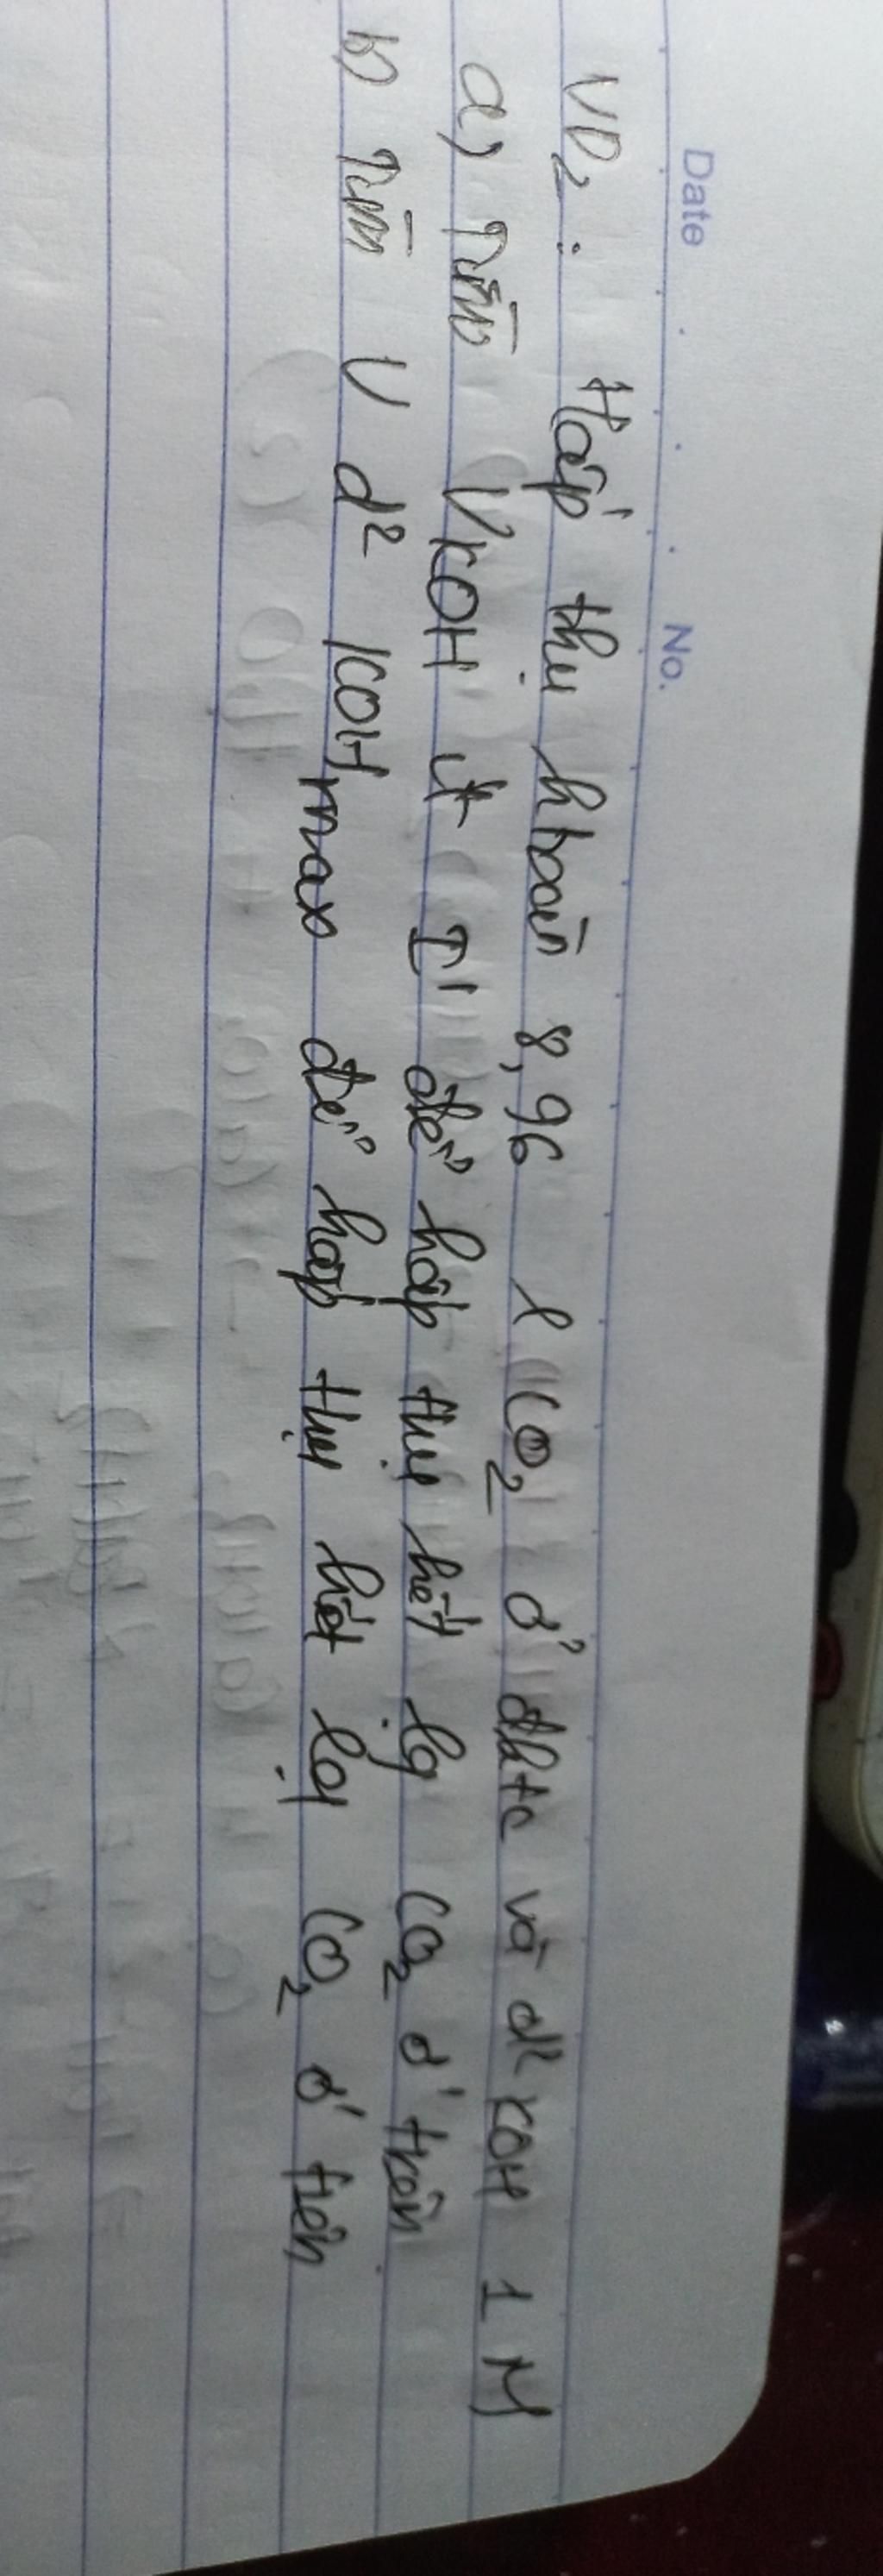 Date No.
VD2: Hấp thụ hoàn 8,96 l CO2 ở đktc và d² KOH 1M
a) Tìm VKOH ít I' để hấp thụ hết lg CO2 ở trên
b) Tìm V d² KOH max để hấp thụ hết lg CO2 ở trên